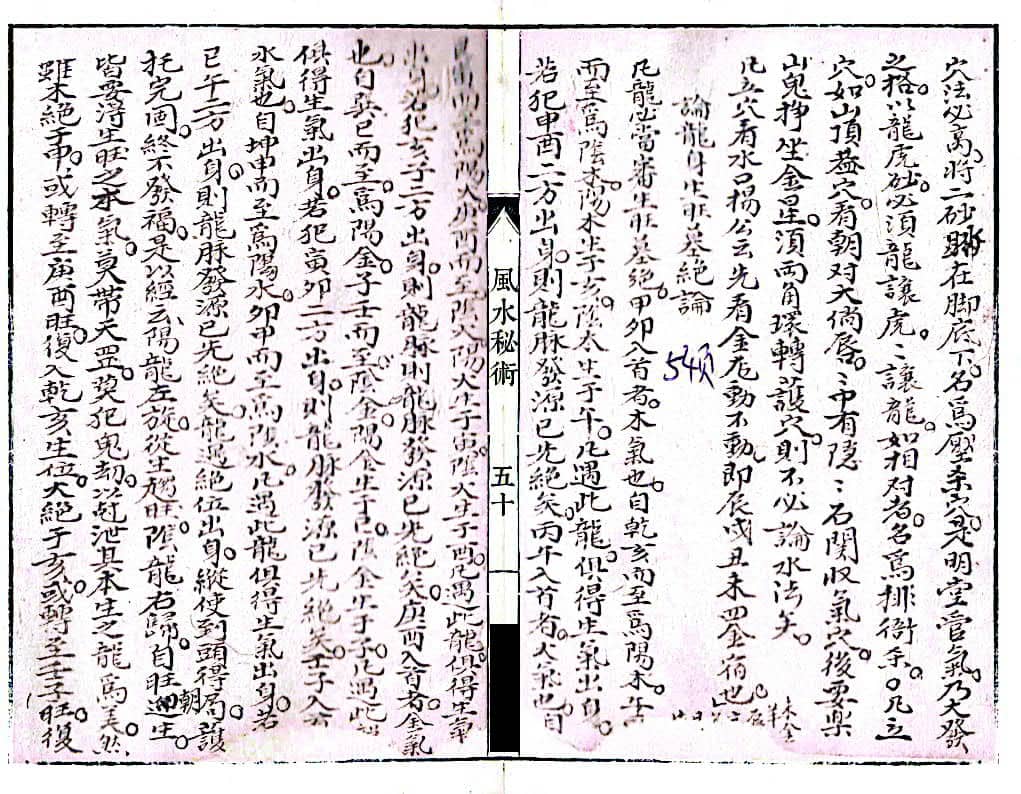 穴法必高將二砂歸在脚底下名爲壓杀穴是明堂管氣乃大發
之格以龍虎砂必須龍讓虎〻讓龍如相对者名爲排衙杀凡立
穴如山頂葢穴看朝对大倘唇〻帀有隐〻石関収氣穴後要樂
山鬼掙坐金星須两角環轉護穴則不必論水法矣
凡立穴看水口楊公云先看金龙動不動即辰戌丑未四金宿也
論龍身生旺墓絕論
54项
凡龍必當審生旺墓絕甲卯入首者木氣也自乾亥而至爲陽木
而至爲陰木陽木生于亥陰木生于午凡遇此龍俱得生氣出身
若犯申酉二方出身則龍脉發源已先絕矣丙午入首者火氣也自
風水秘術
五十
而至爲陽火 而至陰火陽火生于寅陰火生于酉凡遇此龍俱得生氣
出身若犯亥子二方出身則龍脉則龍脉發源已先絕矣庚酉入首者金氣
也自巽巳而至爲陽金子壬而至陰金陽金生于巳陰金生于子凡遇此
俱得生氣出身若犯寅卯二方出身則龍脉發源已先絕矣壬子入首
水氣也自坤申而至爲陽水卯甲而至爲陰水凡遇此龍俱得生氣出身若
巳午二方出身則龍脉發源已先絕矣龍遇絕位出身縱使到頭得局護
托完固終不發福是以經云陽龍左旋從生趨旺陰龍右歸自旺迎生
朝
皆要淂生旺之本氣莫帶天罡莫犯鬼劫以尅泄其本生之龍爲美然
雖木絕于申或轉至庚酉旺復入乾亥生位火絕于亥或轉至壬子旺復